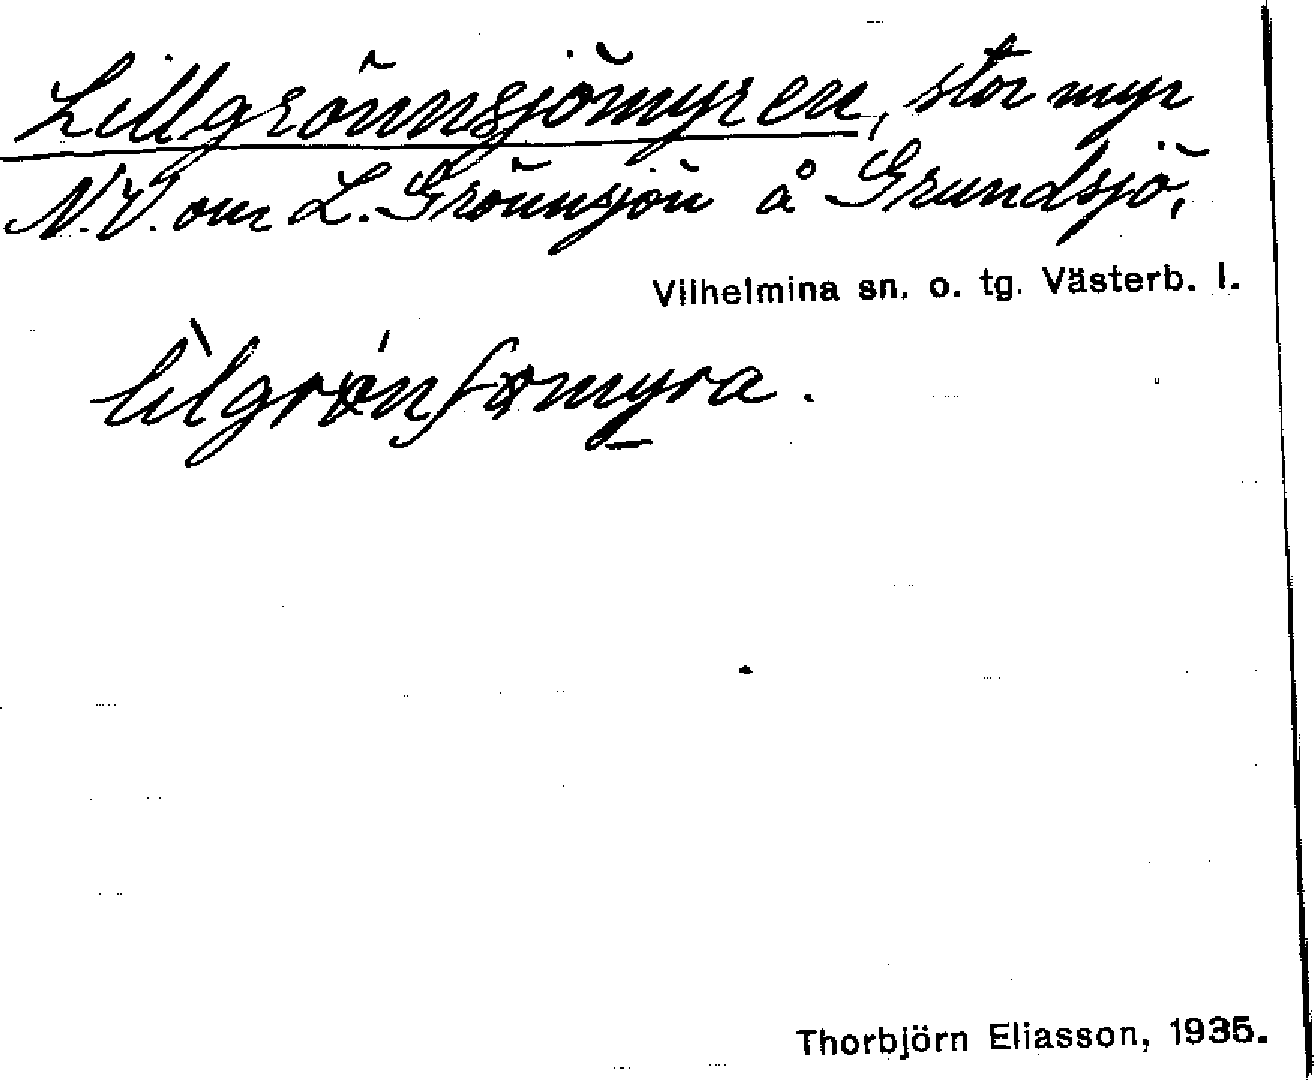 Lillgrönnsjömyren, stor myr
N.V. om L. Grönnsjön å Grundsjö,
Vilhelmina sn. o. tg. Västerb. l.
Thorbjörn Eliasson, 1935.